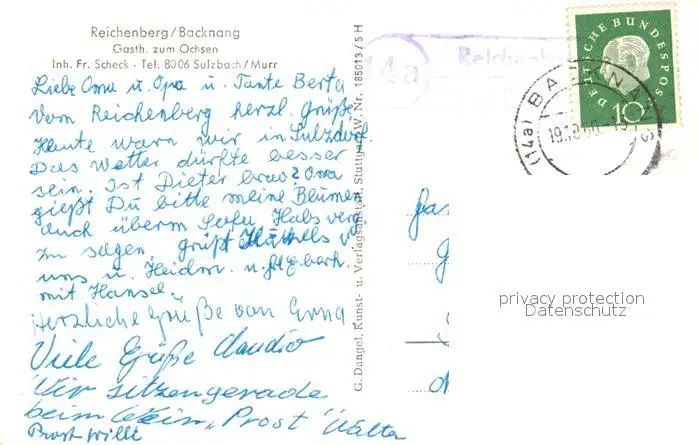 Reichenberg/Backnang
Gasth. zum Ochsen
Inh. Fr. Scheck · Tel. 8006 Sulzbach/Murr
Liebe Oma u. Opa u. Tante Berta
Vom Reichenberg herzl. Grüße
Heute warn wir in Sulzdorf.
Das Wetter dürfte besser
sein. Ist Dieter brav? Oma
gießt Du bitte meine Blumen
auch überm Sofa. Habs verg.
zu sagen. grüßt v.
uns u. Heidm. u.
mit Hansel.
Herzliche Grüße von Emma
Viele Grüße Claudio
Wir sitzen gerade
beim Wein, Prost Walter
Prost Willi
G. Dangel, Kunst- u. Verlagsanstalt, Stuttgart-W, Nr. 185013/5 H
14a
Reichenb
(14a) BACKNANG
DEUTSCHE BUNDESPOST
10
privacy protection
Datenschutz